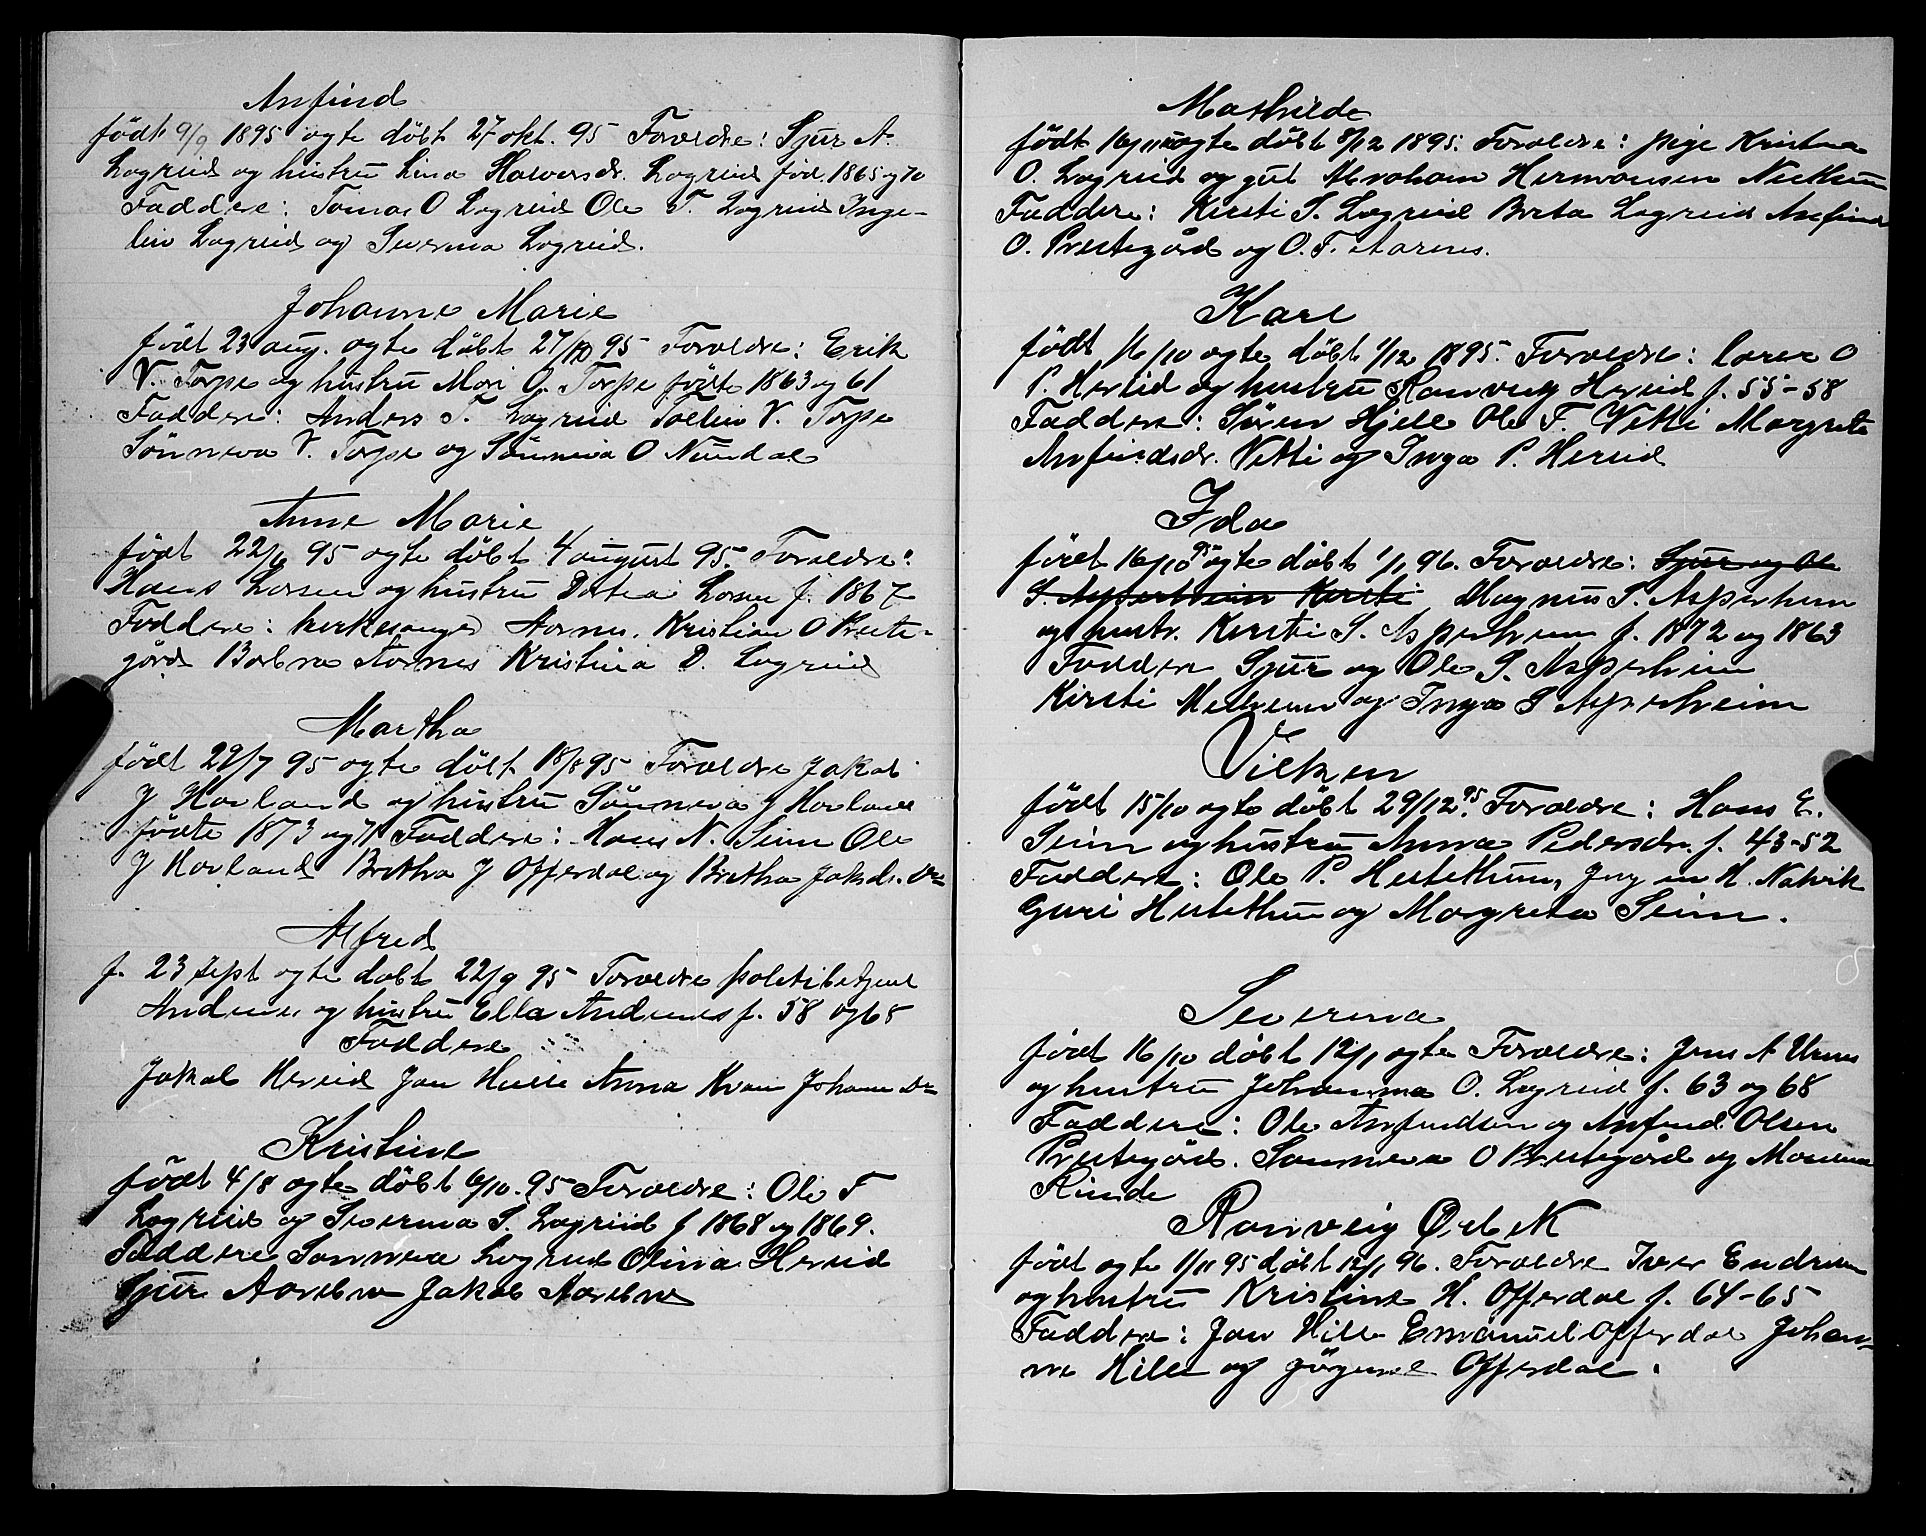 Anfind
født 9/9 1895 ogte døbt 27 okt. 95 Forældre: Sjur A.
Lægreid og hustru Lina Halvorsdr. Lægreid fød. 1865 og 70
Faddere: Tomas O Lægreid Ole T. Lægreid Inge-
lin Lægreid og Severina Lægreid.
Johanne Marie
født 23 aug. ogte døbt 27/10 95 Forældre: Erik
V. Torpe og hustru Mari O. Torpe fødte 1863 og 61
Faddere: Anders T. Lægreid Tollev V. Torpe
Sønneva V. Torpe og Sønneva O Nundal
Anne Marie
født 22/6 95 ogte døbt 4 august 95. Forældre:
Hans Larsen og hustru Dortea Larsen f. 1867
Faddere: kirkesanger Aarnes. Kristian O Preste-
gård Barbra Aarnes Kristina D. Lægreid
Martha
født 22/7 95 ogte døbt 18/8 95 Forældre Jakob
J Hovland og hustru Sønneva J Hovland
fødte 1873 og 71 Faddere: Hans N. Seim Ole
J Hovland Britha J Offerdal og Britha Jakdr.
Alfred
f. 23 sept ogte døbt 22/9 95 Forældre politibetjent
Andenes og hustru Ella Andenes f. 58 og 65
Faddere
Jakob Hereid Jan Hille Anna Kvam Johann
Kristine
født 4/8 ogte døbt 6/10. 95 Forældre: Ole T
Lægreid og Severina S. Lægreid f 1868 og 1869.
Faddere Sønneva Lægreid Olina Hereid
Sjur Aarebru Jakob Aarebru
Mathilde
født 16/11 uægte døbt 8/12 1895. Forældre: pige Kristina
O. Lægreid og gut Abraham Hermansen
Faddere: Kirsti T. Lægreid Brita Lægreid Anfind
O. Prestegård og O. T. Aarnes.
Kare
født 16/10 ogte døbt 1/12 1895. Forældre: Lars O
P. Hereid og hustru Ranveig Hereid f. 55-58
Faddere: Søren Hjelle Ole T. Vetti Margreta
Anfindsdr. Vetti og Inga P. Hereid
Ida
født 16/10 95 ogte døbt 1/1 96. Forældre: Sjur og Ole
S. Asperheim Kirsti Magnus S. Asperheim
og hustr. Kirsti S. Asperheim f. 1872 og 1863
Faddere Sjur og Ole S. Asperheim
Kirsti Melheim og Inga S Asperheim
Vilken
født 15/10 ogte døbt 29/12 95. Forældre: Hans E.
Seim og hustru Anna Pedersdr. f. 43-52
Faddere: Ole P. Hestethun, H. Natvik
Guri Hestethun og Margreta Seim.
Severina
født 16/10 døbt 12/1 ogte Forældre: Jens A
og hustru Johanna O. Lægreid f. 63 og 68
Faddere: Ole Anfindsen og Anfind Olsen
Prestegård. Sønneva O Prestegård og
Rinde
Ranveig Ørbek
født ogte 1/11 95 døbt 12/1 96. Forældre Iver Endresen
og hustru Kristine H. Offerdal f. 64-65
Faddere: Jan Hille Emanuel Offerdal Johan-
ne Hille og Jørgine Offerdal.